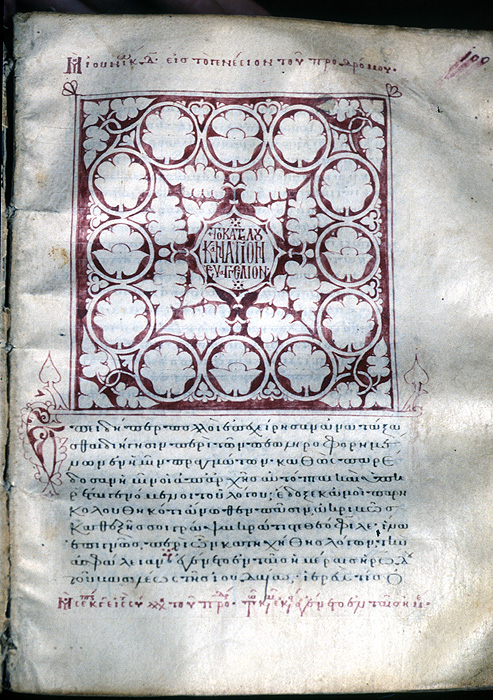 Μ ἰουνίω κδ εἰς τὸ γενέσιον τοῦ προδρόμου.
100
ΤΟ ΚΑΤ ΛΟΥ
ΚΑΝ ΑΓΙΟΝ
ΕΥΑΓΓΕΛΙΟΝ
Ἐπειδήπερ πολλοὶ ἐπεχείρησαν ἀνατάξα
σθαι διήγησιν περὶ τῶν πεπληροφορημέ
νων ἐν ἡμῖν πραγμάτων· καθὼς παρέ
δοσαν ἡμῖν οἱ ἀπαρχῆς αὐτόπται καὶ ὑπη
ρέται γενόμενοι τοῦ λόγου· ἔδοξε κἀμοὶ παρη
κολουθηκότι ἄνωθεν πᾶσιν ἀκριβῶς
καθεξῆς σοι γράψαι κράτιστε θεόφιλε, ἵνα
ἐπιγνῷς περὶ ὧν κατηχήθης λόγων τὴν
ἀσφάλειαν· ἐγένετο ἐν ταῖς ἡμέραις ἡρώδ
του βασιλέως τῆς ἰουδαίας ἱερεύς τις ὀ